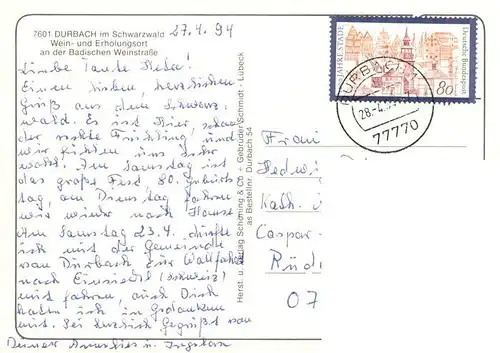 7601 DURBACH im Schwarzwald
Wein- und Erholungsort
an der Badischen Weinstraße
27.4.94
Liebe Tante Heda!
Einen lieben, herzlichen
Gruß aus dem Schwarz-
wald. Es ist hier schon
der rechte Frühling, und
wir fühlen uns sehr
wohl. Am Samstag ist
das große Fest 80. Geburts
tag, am Dienstag fahren
wir wieder nach Hause
Am Samstag 23.4. durfte
ich mit der Gemeinde
von Durbach zur Wallfahrt
nach Einsiedl (Schweiz)
mit fahren, auch Dich
hatte ich in Gedanken
mit. Sei herzlich Gegrüßt von
Deiner Annelies u.
Herst. u. Verlag Schöning & Co · Gebrüder Schmidt · Lübeck
Bestellnr. Durbach 54
JAHRE STADE
Deutsche Bundespost
80
DURBACH
28.-4.
77770
Frau
Hedwi
Kath.
Caspar-
Rüd
07